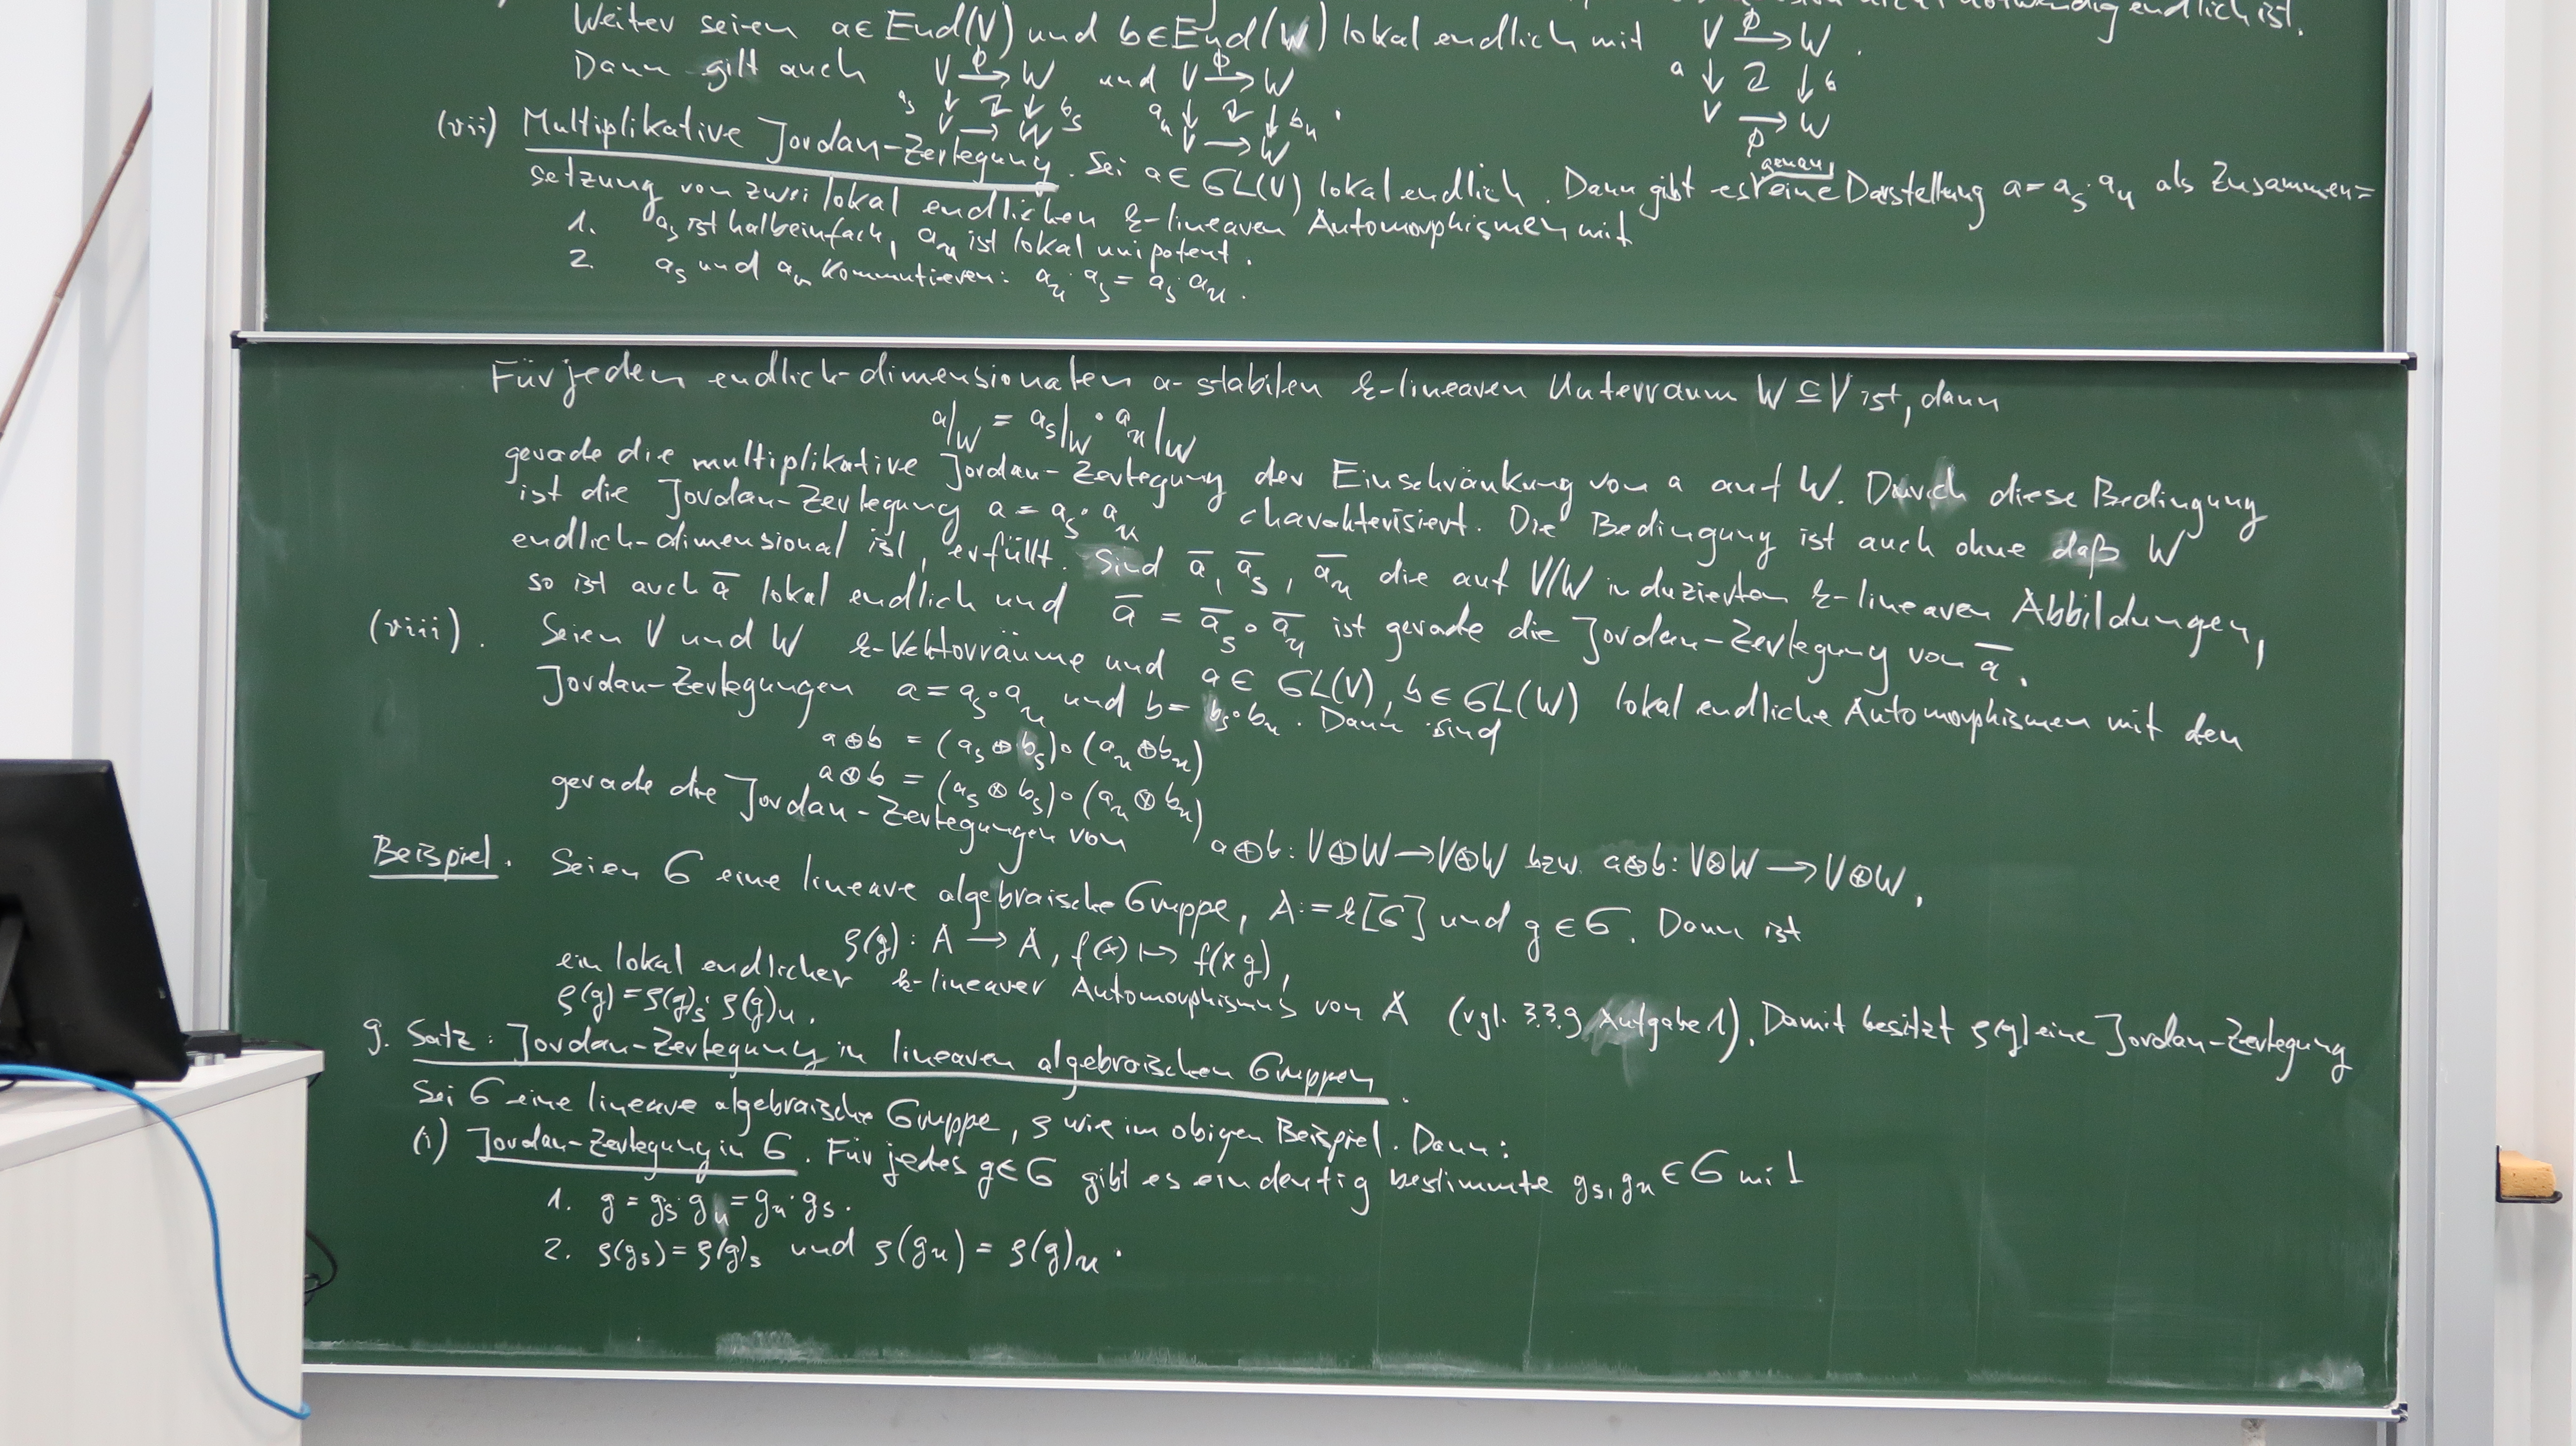 notwendig endlich ist.
Weiter seien a ∈ End(V) und b ∈ End(W) lokal endlich mit V →ϕ W .
a ↓ ↻ ↓ b
V →ϕ W
Dann gilt auch V →ϕ W und V →ϕ W
a_s ↓ ↻ ↓ b_s a_u ↓ ↻ ↓ b_u .
V → W V → W
(vii) Multiplikative Jordan-Zerlegung. Sei a ∈ GL(V) lokal endlich. Dann gibt es genau eine Darstellung a = a_s · a_u als Zusammen=
setzung von zwei lokal endlichen k-linearen Automorphismen mit
1. a_s ist halbeinfach, a_u ist lokal unipotent.
2. a_s und a_u kommutieren: a_u · a_s = a_s · a_u .
Für jeden endlich-dimensionalen a-stabilen k-linearen Unterraum W ⊆ V ist, dann
a|_W = a_s|_W ∘ a_u|_W
gerade die multiplikative Jordan-Zerlegung der Einschränkung von a auf W. Durch diese Bedingung
ist die Jordan-Zerlegung a = a_s ∘ a_u charakterisiert. Die Bedingung ist auch ohne daß W
endlich-dimensional ist, erfüllt. Sind ā, ā_s, ā_u die auf V/W induzierten k-linearen Abbildungen,
so ist auch ā lokal endlich und ā = ā_s ∘ ā_u ist gerade die Jordan-Zerlegung von ā.
(viii). Seien V und W k-Vektorräume und a ∈ GL(V), b ∈ GL(W) lokal endliche Automorphismen mit den
Jordan-Zerlegungen a = a_s ∘ a_u und b = b_s ∘ b_u . Dann sind
a ⊕ b = (a_s ⊕ b_s) ∘ (a_u ⊕ b_u)
a ⊗ b = (a_s ⊗ b_s) ∘ (a_u ⊗ b_u)
gerade die Jordan-Zerlegungen von a⊕b: V⊕W → V⊕W bzw. a⊗b: V⊗W → V⊗W.
Beispiel. Seien G eine lineare algebraische Gruppe, A := k[G] und g ∈ G. Dann ist
ρ(g): A → A, f(x) ↦ f(xg),
ein lokal endlicher k-linearer Automorphismus von A (vgl. 3.3.9 Aufgabe 1). Damit besitzt ρ(g) eine Jordan-Zerlegung
ρ(g) = ρ(g)_s · ρ(g)_u .
9. Satz: Jordan-Zerlegung in linearen algebraischen Gruppen.
Sei G eine lineare algebraische Gruppe, ρ wie im obigen Beispiel. Dann:
(i) Jordan-Zerlegung in G. Für jedes g ∈ G gibt es eindeutig bestimmte g_s, g_u ∈ G mit
1. g = g_s · g_u = g_u · g_s .
2. ρ(g_s) = ρ(g)_s und ρ(g_u) = ρ(g)_u .